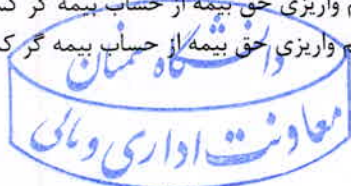 م واریزی حق بیمه از حساب بیمه گر کس
م واریزی حق بیمه از حساب بیمه گر کس
دانشگاه سمنان
معاونت اداری و مالی